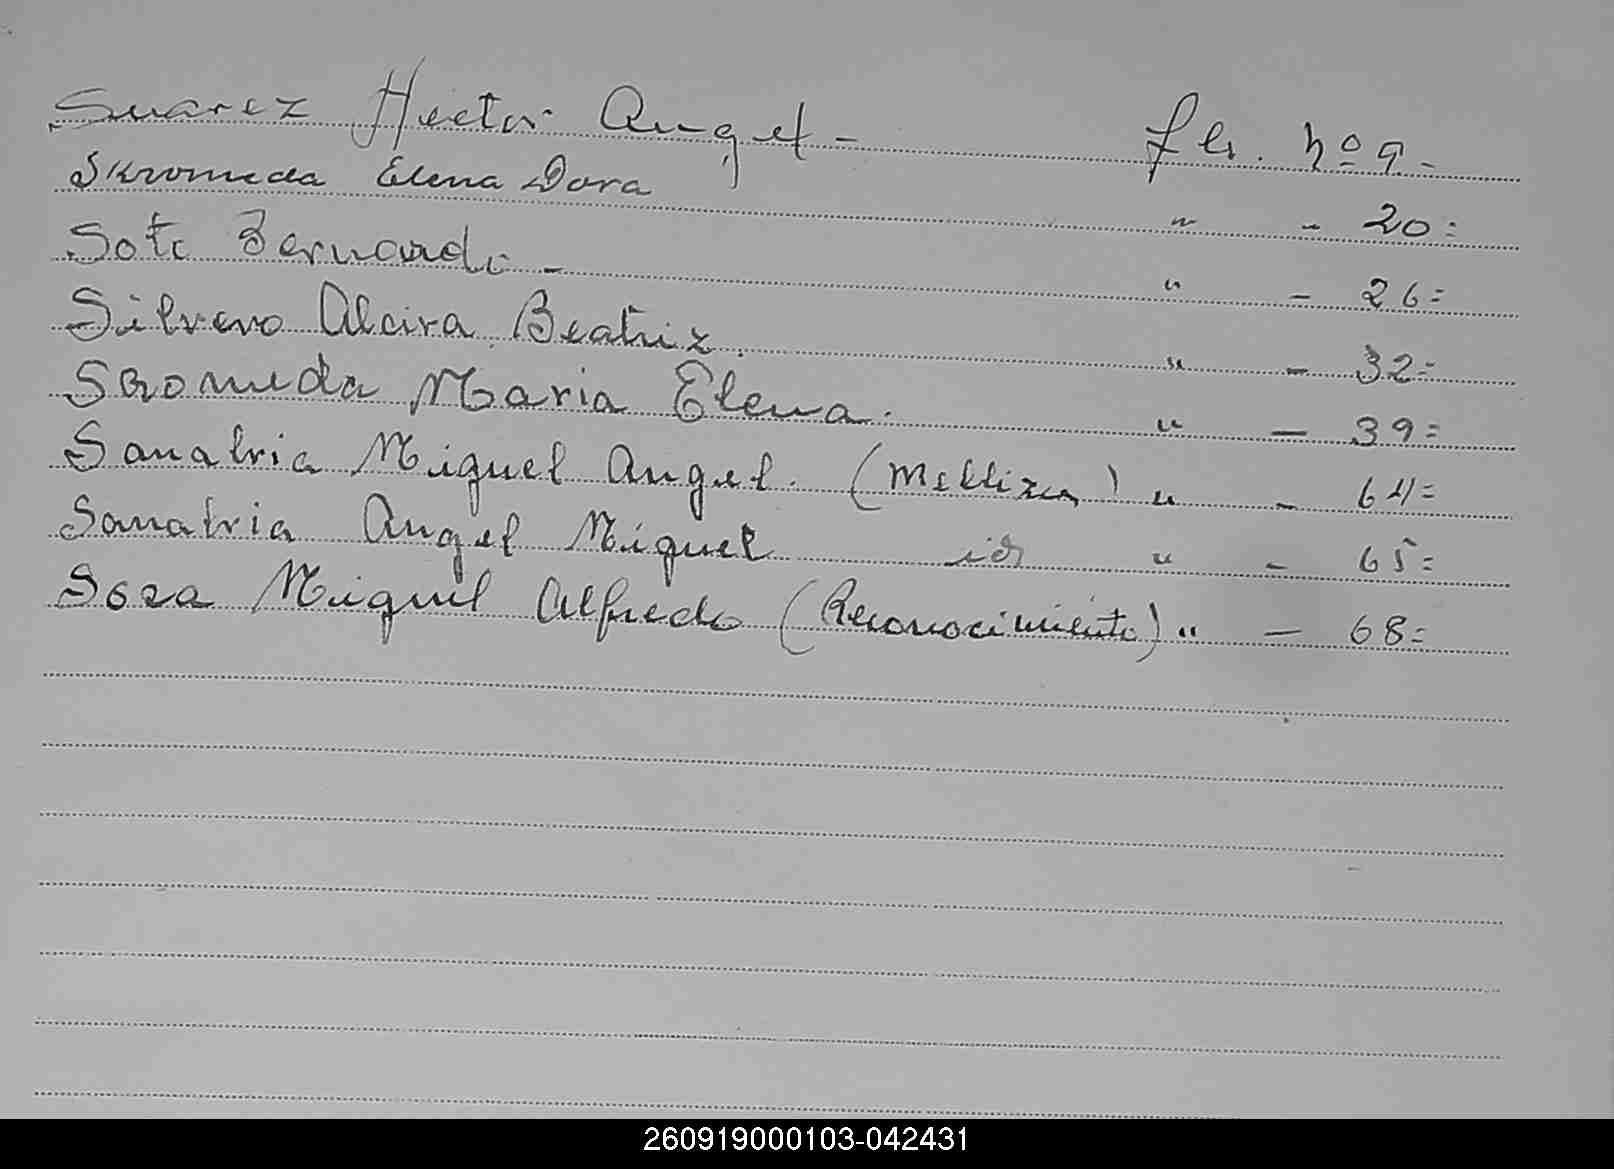 Suarez Hector Angel - fls. nº 9 -
Skromeda Elena Dora " - 20=
Soto Bernardo - " - 26=
Silvero Alcira Beatriz. " - 32=
Scromeda Maria Elena. " - 39=
Sanabria Miguel Angel. (Mellizos) " - 64=
Sanabria Angel Miguel id " - 65=
Sosa Miguel Alfredo (Reconocimiento) " - 68=
260919000103-042431